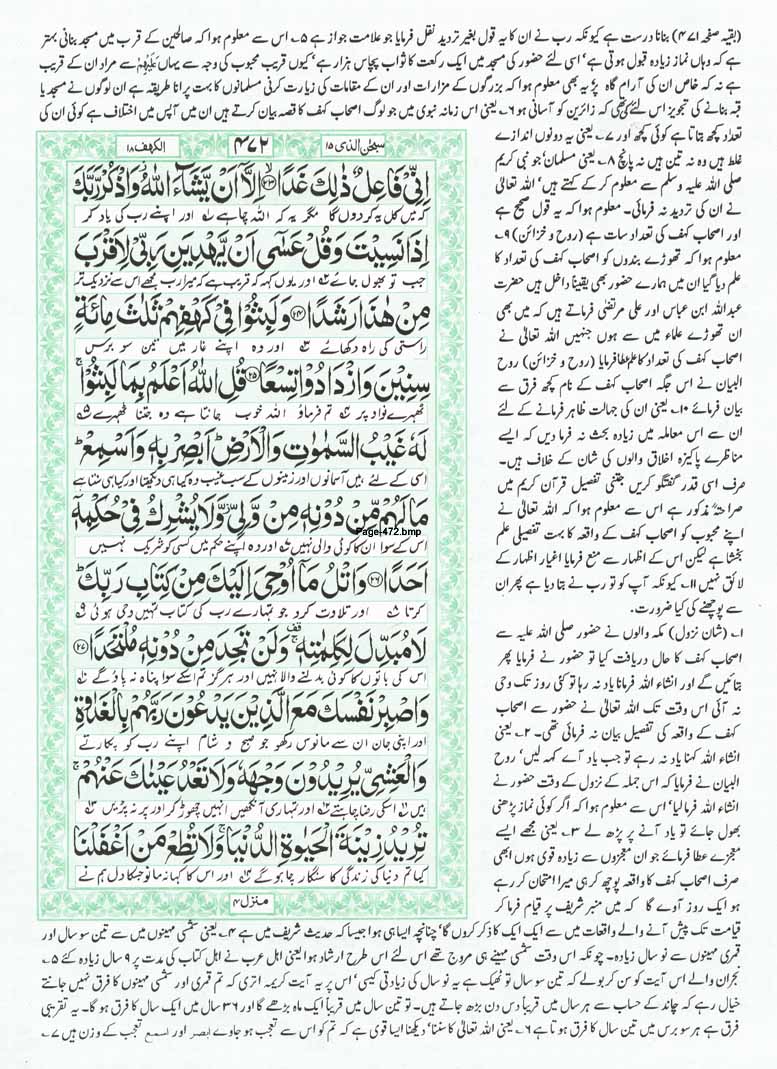 (بقیہ صفحہ ۴۷۱) بنانا درست ہے کیونکہ رب نے ان کا یہ قول بغیر تردید نقل فرمایا جو علامت جواز ہے ۵۔ اس سے معلوم ہوا کہ صالحین کے قرب میں مسجد بنانی بہتر
ہے کہ وہاں نماز زیادہ قبول ہوتی ہے' اسی لئے حضور کی مسجد میں ایک رکعت کا ثواب پچاس ہزار ہے' کیوں قریب محبوب کی وجہ سے یہاں علیہم سے مراد ان کے قریب
ہے نہ کہ خاص ان کی آرام گاہ پر یہ بھی معلوم ہوا کہ بزرگوں کے مزارات اور ان کے مقامات کی زیارت کرنی مسلمانوں کا بہت پرانا طریقہ ہے ان لوگوں نے مسجد یا
قبہ بنانے کی تجویز اس لئے کی تھی کہ زائرین کو آسانی ہو ۶۔ یعنی اس زمانہ نبوی میں جو لوگ اصحاب کہف کا قصہ بیان کرتے ہیں ان میں آپس میں اختلاف ہے کوئی ان کی
تعداد کچھ بتاتا ہے کوئی کچھ اور ۷۔ یعنی یہ دونوں اندازے
غلط ہیں وہ نہ تین ہیں نہ پانچ ۸۔ یعنی مسلمان' جو نبی کریم
صلی اللہ علیہ وسلم سے معلوم کر کے کہتے ہیں' اللہ تعالیٰ
نے ان کی تردید نہ فرمائی۔ معلوم ہوا کہ یہ قول صحیح ہے
اور اصحاب کہف کی تعداد سات ہے (روح و خزائن) ۹۔
معلوم ہوا کہ تھوڑے بندوں کو اصحاب کہف کی تعداد کا
علم دیا گیا ان میں ہمارے حضور بھی یقیناً داخل ہیں حضرت
عبداللہ ابن عباس اور علی مرتضیٰ فرماتے ہیں کہ میں بھی
ان تھوڑے علماء میں سے ہوں جنہیں اللہ تعالیٰ نے
اصحاب کہف کی تعداد کا علم عطا فرمایا (روح و خزائن) روح
البیان نے اس جگہ اصحاب کہف کے نام کچھ فرق سے
بیان فرمائے ۱۰۔ یعنی ان کی جہالت ظاہر فرمانے کے لئے
ان سے اس معاملہ میں زیادہ بحث نہ فرما دیں کہ ایسے
مناظرے پاکیزہ اخلاق والوں کی شان کے خلاف ہیں۔
صرف اسی قدر گفتگو کریں جتنی تفصیل قرآن کریم میں
صراحتہً مذکور ہے اس سے معلوم ہوا کہ اللہ تعالیٰ نے
اپنے محبوب کو اصحاب کہف کے واقعہ کا بہت تفصیلی علم
بخشا ہے لیکن اس کے اظہار سے منع فرمایا اغیار اظہار کے
لائق نہیں ۱۱۔ کیونکہ آپ کو تو رب نے بتا دیا ہے پھر ان
سے پوچھنے کی کیا ضرورت۔
۱۔ (شان نزول) مکہ والوں نے حضور صلی اللہ علیہ سے
اصحاب کہف کا حال دریافت کیا تو حضور نے فرمایا پھر
بتائیں گے اور انشاء اللہ فرمانا یاد نہ رہا تو کئی روز تک وحی
نہ آئی اس وقت تک اللہ تعالیٰ نے حضور سے اصحاب
کہف کے واقعہ کی تفصیل بیان نہ فرمائی تھی۔ ۲۔ یعنی
انشاء اللہ کہنا یاد نہ رہے تو جب یاد آے کہہ لیں' روح
البیان نے فرمایا کہ اس جملہ کے نزول کے وقت حضور نے
انشاء اللہ فرما لیا' اس سے معلوم ہوا کہ اگر کوئی نماز پڑھنی
بھول جائے تو یاد آنے پر پڑھ لے ۳۔ یعنی مجھے ایسے
معجزے عطا فرمائے جو ان معجزوں سے زیادہ قوی ہوں ابھی
صرف اصحاب کہف کا واقعہ پوچھ کر ہی میرا امتحان کر رہے
ہو ایک روز آوے گا کہ میں منبر شریف پر قیام فرما کر
سبحٰن الذی ۱۵
۴۷۲
الکھف ۱۸
اِنِّیْ فَاعِلٌ ذٰلِكَ غَدًا ﴿۲۳﴾ اِلَّاۤ اَنْ یَّشَآءَ اللّٰهُ وَاذْكُرْ رَّبَّكَ
کہ میں کل یہ کر دوں گا مگر یہ کہ اللہ چاہے ۱ اور اپنے رب کی یاد کر
اِذَا نَسِیْتَ وَقُلْ عَسٰۤی اَنْ یَّهْدِیَنِ رَبِّیْ لِاَقْرَبَ
جب تو بھول جائے ۲ اور یوں کہہ کہ قریب ہے کہ میرا رب مجھے اس سے نزدیک تر
مِنْ هٰذَا رَشَدًا ﴿۲۴﴾ وَلَبِثُوْا فِیْ كَهْفِهِمْ ثَلٰثَ مِائَةٍ
راستی کی راہ دکھائے ۳ اور وہ اپنے غار میں تین سو برس
سِنِیْنَ وَازْدَادُوْا تِسْعًا ﴿۲۵﴾ قُلِ اللّٰهُ اَعْلَمُ بِمَا لَبِثُوْا
ٹھہرے نو اوپر ۴ تم فرماؤ اللہ خوب جانتا ہے وہ جتنا ٹھہرے ۵
لَهٗ غَیْبُ السَّمٰوٰتِ وَالْاَرْضِ اَبْصِرْ بِهٖ وَاَسْمِعْ
اسی کے لئے ہیں آسمانوں اور زمینوں کے سب غیب وہ کیا ہی دیکھتا اور کیا ہی سنتا ہے
مَا لَهُمْ مِّنْ دُوْنِهٖ مِنْ وَّلِیٍّ وَّلَا یُشْرِكُ فِیْ حُكْمِهٖۤ
Page-472.bmp
اس کے سوا ان کا کوئی والی نہیں ۷ اور وہ اپنے حکم میں کسی کو شریک نہیں
اَحَدًا ﴿۲۶﴾ وَاتْلُ مَاۤ اُوْحِیَ اِلَیْكَ مِنْ كِتَابِ رَبِّكَ
کرتا ۸ اور تلاوت کرو جو تمہارے رب کی کتاب تمہیں وحی ہوئی ۹
لَا مُبَدِّلَ لِكَلِمٰتِهٖ وَلَنْ تَجِدَ مِنْ دُوْنِهٖ مُلْتَحَدًا ﴿۲۷﴾
اس کی باتوں کا کوئی بدلنے والا نہیں اور ہرگز تم اسکے سوا پناہ نہ پاؤ گے
وَاصْبِرْ نَفْسَكَ مَعَ الَّذِیْنَ یَدْعُوْنَ رَبَّهُمْ بِالْغَدٰوةِ
اور اپنی جان ان سے مانوس رکھو جو صبح و شام اپنے رب کو پکارتے
وَالْعَشِیِّ یُرِیْدُوْنَ وَجْهَهٗ وَلَا تَعْدُ عَیْنٰكَ عَنْهُمْ
ہیں اسکی رضا چاہتے اور تمہاری آنکھیں انہیں چھوڑ کر اور پر نہ پڑیں
تُرِیْدُ زِیْنَةَ الْحَیٰوةِ الدُّنْیَا وَلَا تُطِعْ مَنْ اَغْفَلْنَا
کیا تم دنیا کی زندگی کا سنگار چاہو گے اور اس کا کہا نہ مانو جس کا دل ہم نے
منزل ۴
قیامت تک پیش آنے والے واقعات میں سے ایک ایک کا ذکر کروں گا' چنانچہ ایسا ہی ہوا جیسا کہ حدیث شریف میں ہے ۴۔ یعنی شمسی مہینوں میں سے تین سو سال اور
قمری مہینوں سے نو سال زیادہ۔ چونکہ اس وقت شمسی مہینے ہی مروج تھے اس لئے اس طرح ارشاد ہوا یعنی اہل عرب نے اہل کتاب کی مدت پر ۹ سال زیادہ کئے ۵۔
نجران والے اس آیت کو سن کر بولے کہ تین سو سال تو ٹھیک ہے یہ نو سال کی زیادتی کیسی' اس پر یہ آیت کریمہ اتری کہ تم قمری اور شمسی مہینوں کا فرق نہیں جانتے
خیال رہے کہ چاند کے حساب سے ہر سال میں قریباً دس دن بڑھ جاتے ہیں۔ تو تین سال میں قریباً ایک ماہ بڑھے گا اور ۳۶ سال میں ایک سال کا فرق ہو گا۔ یہ تقریبی
فرق ہے ہر سو برس میں تین سال کا فرق ہوتا ہے ۶۔ یعنی اللہ تعالیٰ کا سننا' دیکھنا ایسا قوی ہے کہ تم کو اس سے تعجب ہو جاوے ابصر اور اسمع تعجب کے وزن ہیں ۷۔